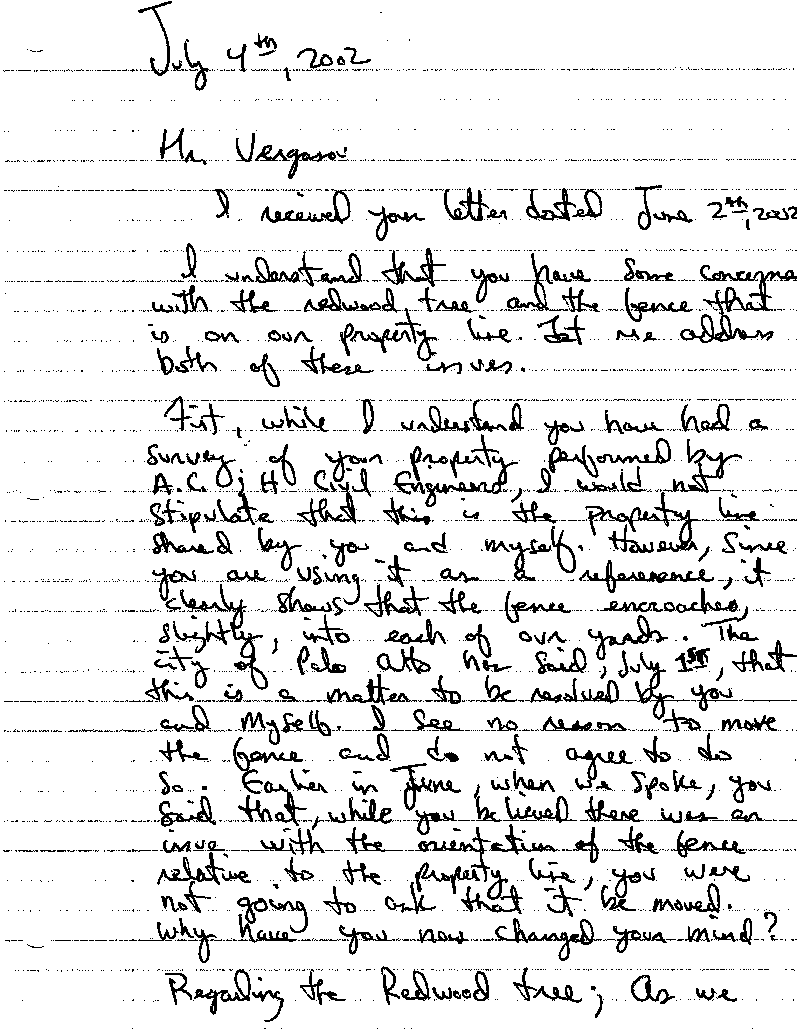 July 4th, 2002
Mr. Vergara:
I received your letter dated June 2th, 2002
I understand that you have some concerns
with the redwood tree and the fence that
is on our property line. Let me address
both of these issues.
First, while I understand you have had a
survey of your property performed by
A.C. & H Civil Engineers, I would not
stipulate that this is the property line
shared by you and myself. However, since
you are using it as a reference, it
clearly shows that the fence encroaches,
slightly, into each of our yards. The
city of Palo Alto has said, July 1st, that
this is a matter to be resolved by you
and myself. I see no reason to move
the fence and do not agree to do
so. Earlier in June, when we spoke, you
said that, while you believed there was an
issue with the orientation of the fence
relative to the property line, you were
not going to ask that it be moved.
Why have you now changed your mind?
Regarding the Redwood tree; As we